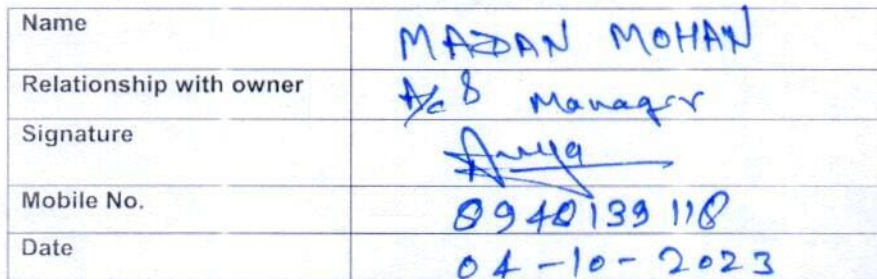 Name MADAN MOHAN
Relationship with owner A/c 8 Manager
Signature
Mobile No. 8940139118
Date 04-10-2023